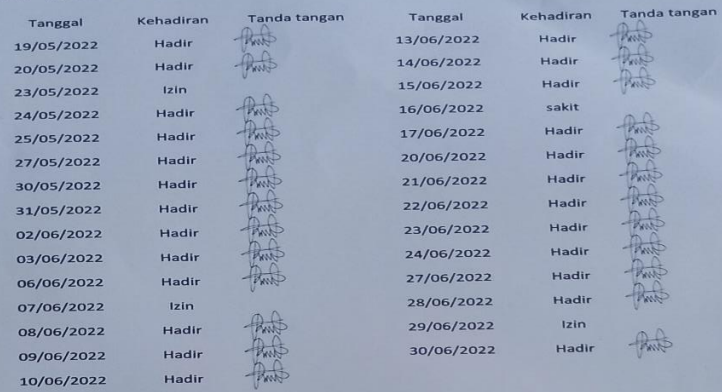 Tanggal Kehadiran Tanda tangan
19/05/2022 Hadir
20/05/2022 Hadir
23/05/2022 Izin
24/05/2022 Hadir
25/05/2022 Hadir
27/05/2022 Hadir
30/05/2022 Hadir
31/05/2022 Hadir
02/06/2022 Hadir
03/06/2022 Hadir
06/06/2022 Hadir
07/06/2022 Izin
08/06/2022 Hadir
09/06/2022 Hadir
10/06/2022 Hadir
Tanggal Kehadiran Tanda tangan
13/06/2022 Hadir
14/06/2022 Hadir
15/06/2022 Hadir
16/06/2022 sakit
17/06/2022 Hadir
20/06/2022 Hadir
21/06/2022 Hadir
22/06/2022 Hadir
23/06/2022 Hadir
24/06/2022 Hadir
27/06/2022 Hadir
28/06/2022 Hadir
29/06/2022 Izin
30/06/2022 Hadir